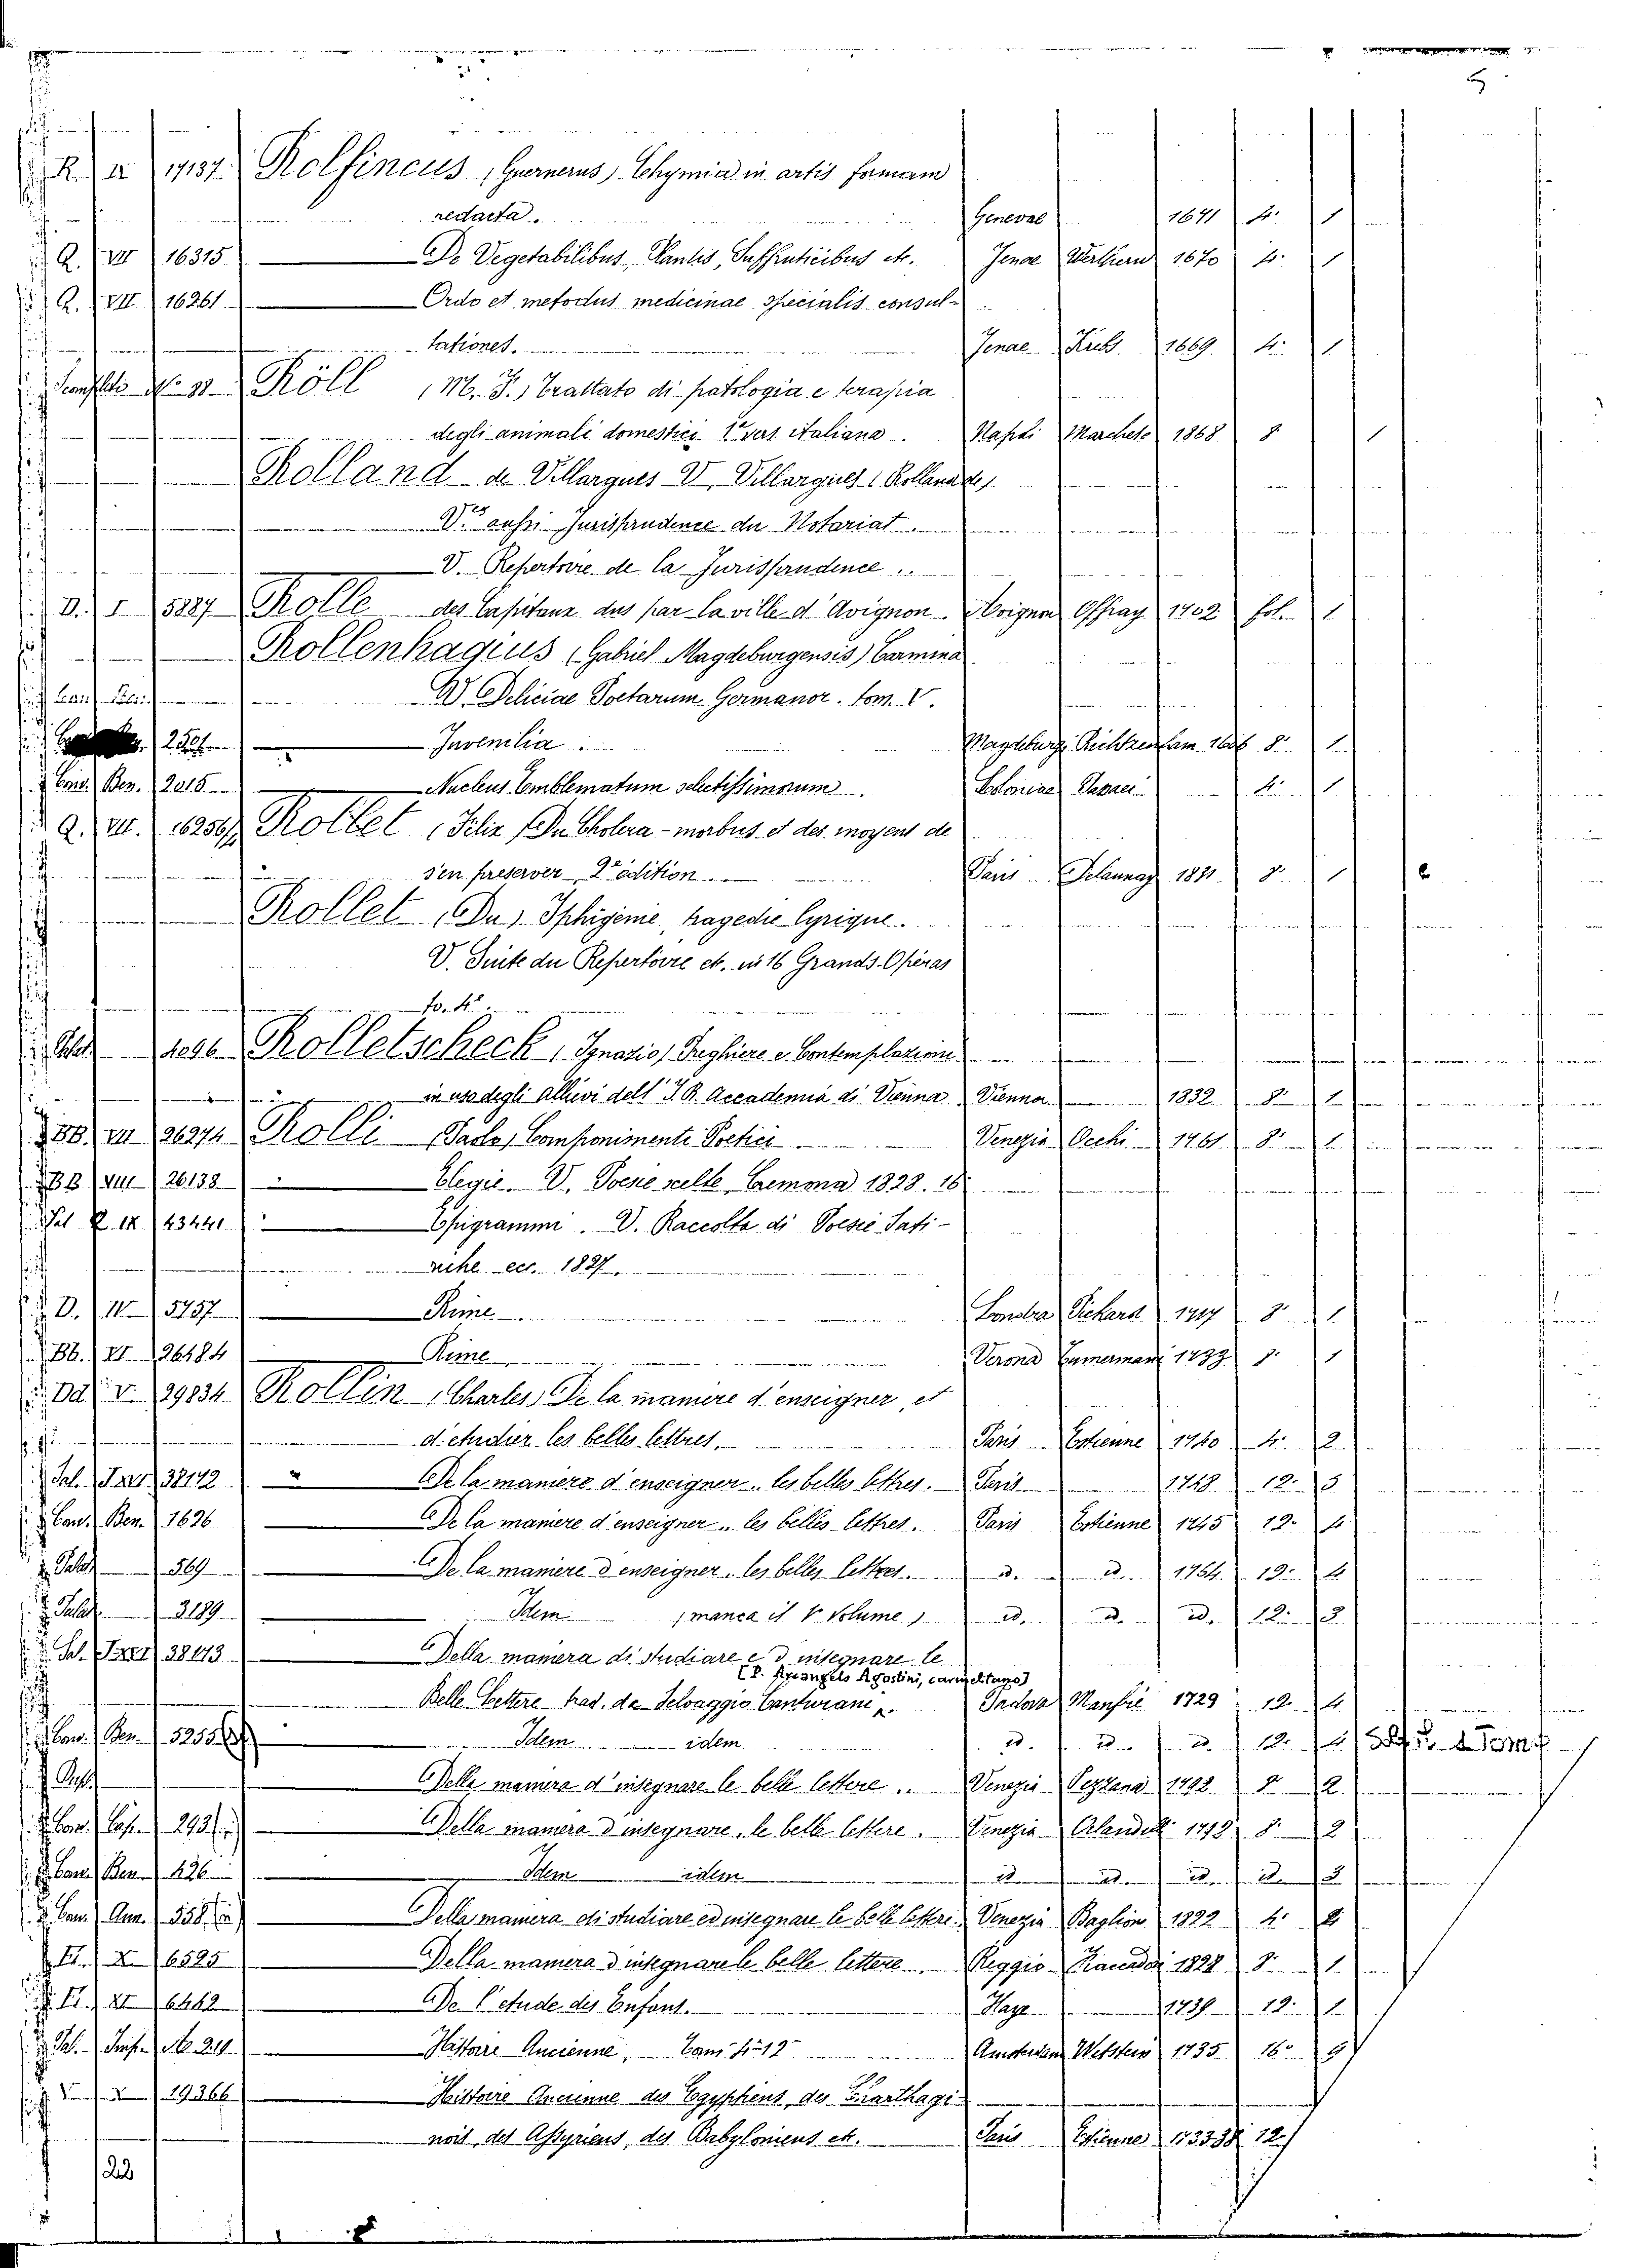 R. II 17137. Rolfincus (Guernerus) Chymia in artis formam
redacta. Genevae 1671 4. 1
Q. VII 16315 De Vegetabilibus, Plantis, Suffruticibus etc. Jenae Werthern 1670 4. 1
Q. VII 16261 Ordo et metodus medicinae specialis consul-
tationes. Jenae Krebs. 1669. 4. 1
Röll (M. F.) Trattato di patologia e terapia
degli animali domestici 1a vers. italiana. Napoli Marchese 1868. 8. 1
Rolland de Villargues V. Villargues (Rolland de)
V.es aussi Jurisprudence du Notariat.
V. Repertoire de la Jurisprudence ..
D. I 5887 Rolle des Capitaux dus par la ville d'Avignon. Avignon Offray 1702 fol. 1
Rollenhagius (Gabriel Magdeburgensis) Carmina
V. Deliciae Poetarum Germanor. tom. V.
Juvenilia Magdeburgi 1606 8. 1
Ben. 2015 Nucleus Emblematum selectissimorum. Coloniae 4. 1
Q. VII. 16256 Rollet (Felix) Du Cholera-morbus et des moyens de
s'en preserver 2e édition. Paris Delaunay 1831. 8. 1
Rollet (Du) Iphigenie, tragedie lyrique.
V. Suite du Repertoire etc. in 16 Grands-Opéras
to. 4.
Rolletscheck (Ignazio) Preghiere e Contemplazioni
in uso degli allievi dell' I. R. Accademia di Vienna Vienna 1832 8. 1
BB. VII 26274 Rolli (Paolo) Componimenti Poetici Venezia Occhi 1761. 8. 1
BB VIII 26138 Elegie. V. Poesie scelte Cremona 1828. 16
43441 Epigrammi. V. Raccolta di Poesie Sati-
riche ecc. 1827.
D. IV 5757 Rime Londra Pickard 1717 8. 1
Bb. VI 26484 Rime Verona Tumermani 1733 8. 1
Dd V. 29834 Rollin (Charles) De la maniere d'enseigner, et
d'etudier les belles lettres. Paris Estienne 1740 4. 2
Sal. 38142 De la maniere d'enseigner .. les belles lettres. Paris 1748 12. 5
Ben. 1636 De la maniere d'enseigner .. les belles lettres. Paris Estienne 1745 12. 4
569 De la maniere d'enseigner .. les belles lettres. d. d. 1764. 12. 4
3189 Idem (manca il 1° volume) id. id. id. 12. 3
Sal. 38143 Della maniera di studiare e d'insegnare le
(P. Arcangelo Agostini, carmelitano)
Belle Lettere trad. da Selvaggio Canturani. Padova Manfrè 1729 12. 4
Ben. 5255 Idem idem. id. id. id. 12. 4
Della maniera d'insegnare le belle lettere .. Venezia Pezzana 1792 8. 2
Cap. 293 Della maniera d'insegnare .. le belle lettere. Venezia Orlandelli 1798 8. 2
Ben. 426 Idem idem id. id. id. id. 2
Con. Ann. 558 Della maniera di studiare ed insegnare le belle lettere. Venezia Baglion 1822 4. 2
X 6525 Della maniera d'insegnare le belle lettere. Reggio 1828 8. 1
XI 6462 De l'etude des Enfans. Haye 1739 12. 1
No. 211 Histoire Ancienne, Tom. 4-12 Amsterdam Wetstein 1735 16. 9
19366 Histoire Ancienne des Egyptiens, des Carthagi-
nois, des Assyriens, des Babyloniens etc. Paris Estienne 1733.38 12.
22